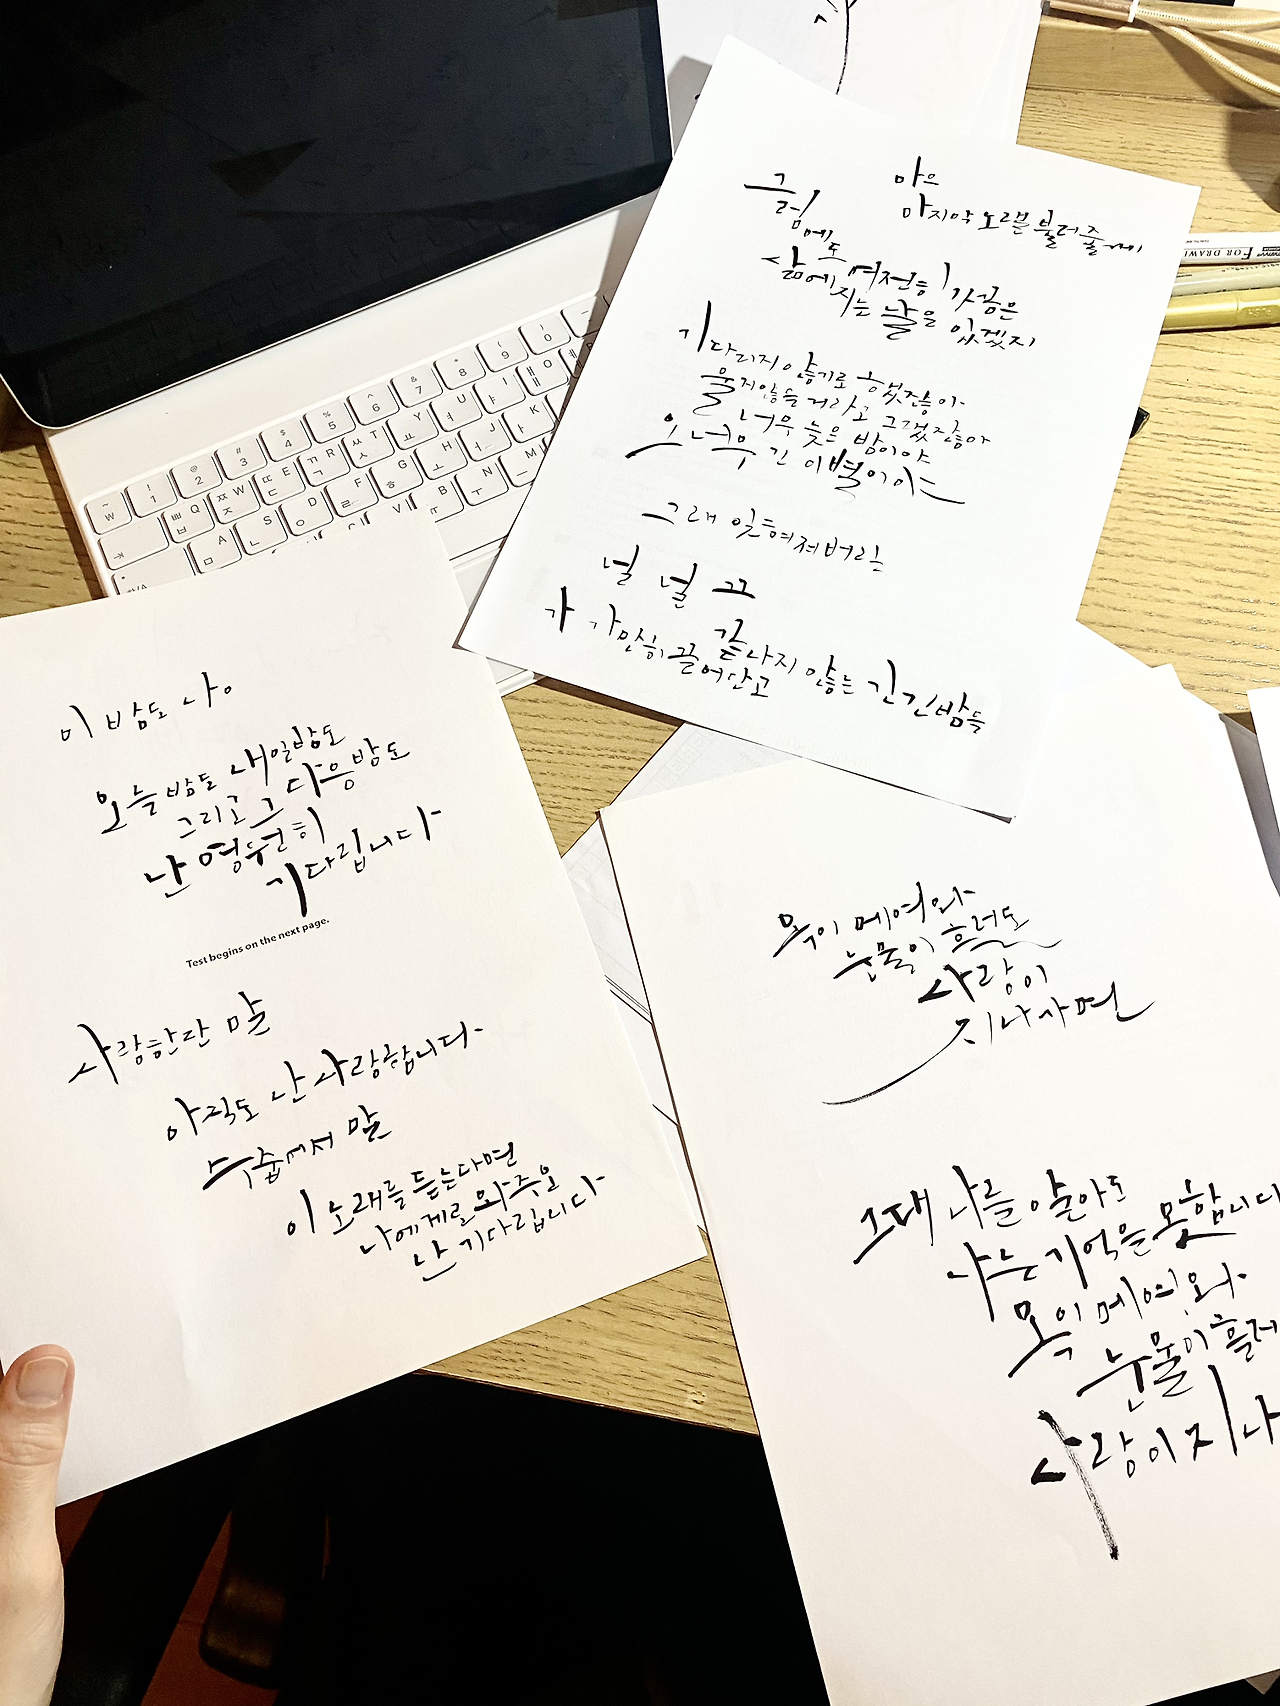 이 밤도 나
오늘밤도 내일밤도
그리고 그 다음밤도
난 영원히
기다립니다
Test begins on the next page.
사랑한단 말
아직도 난 사랑합니다
수줍어서 말
이 노래를 듣는다면
나에게로 와주오
난 기다립니다
마으
마지막 노래를 불러줄게
그럼에도 여전히 가끔은
삶에 지는 날을 있겠지
기다리지 않기로 했잖아
울지않을 거라고 그랬잖아
너무 늦은 밤이야
오 너무 긴 이별이야
그래 잊혀져버린
널 널 끄
가 가만히 끌어안고
끝나지 않는 긴긴밤을
목이 메여와
눈물이 흘러도
사랑이
지나가면
그대 나를 알아도
나는 기억을 못합니다
목이 메여와
눈물이 흘러
사랑이 지나
FOR DRAWI
~ ₩
! 1
@ 2
# 3
$ 4
% 5
^ 6
& 7
* 8
( 9
) 0
ㅃ ㅂ Q
ㅉ ㅈ W
ㄸ ㄷ E
ㄲ ㄱ R
ㅆ ㅅ T
ㅛ Y
ㅕ U
ㅑ I
ㅁ A
ㄴ S
ㅇ D
ㄹ F
ㅎ G
ㅗ H
ㅓ J
ㅏ K
V
B
ㅜ N
ㅡ M